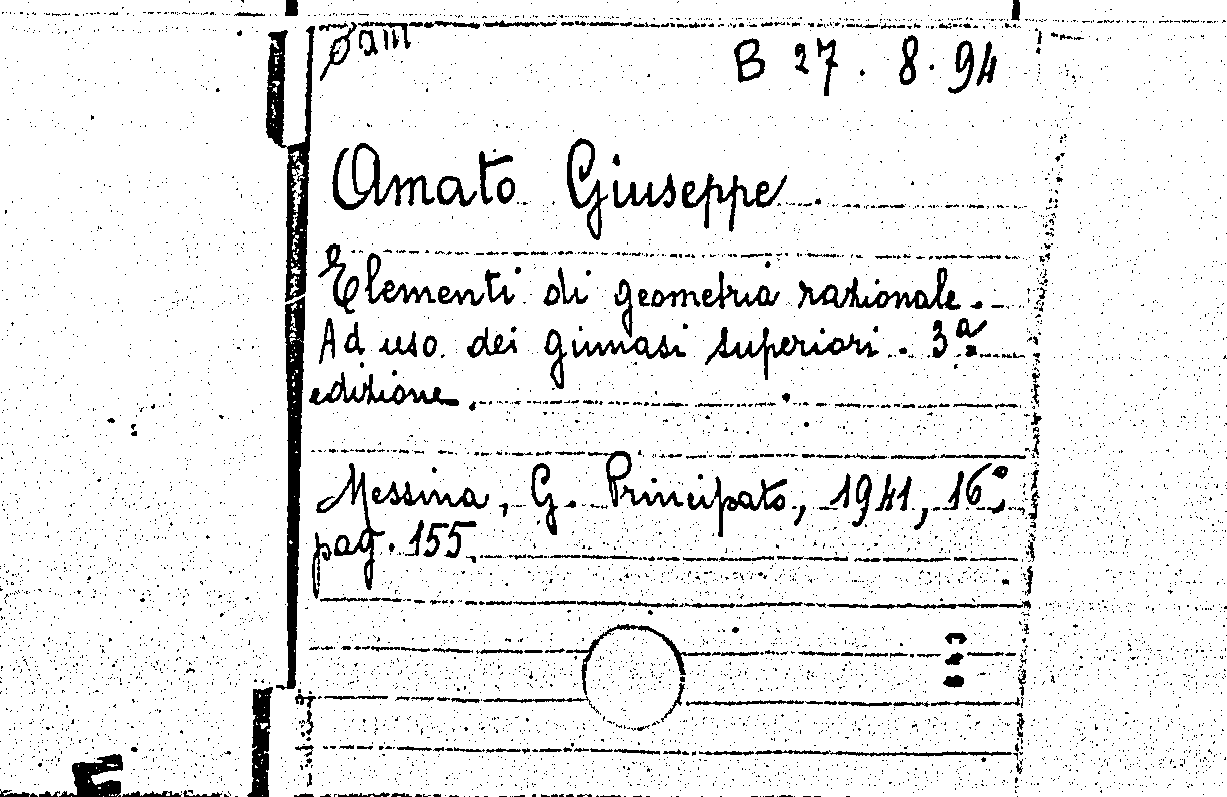 B 27. 8. 94
Amato Giuseppe.
Elementi di geometria razionale.
Ad uso dei ginnasi superiori. 3ª
edizione.
Messina, G. Principato, 1941, 16°,
pag. 155.